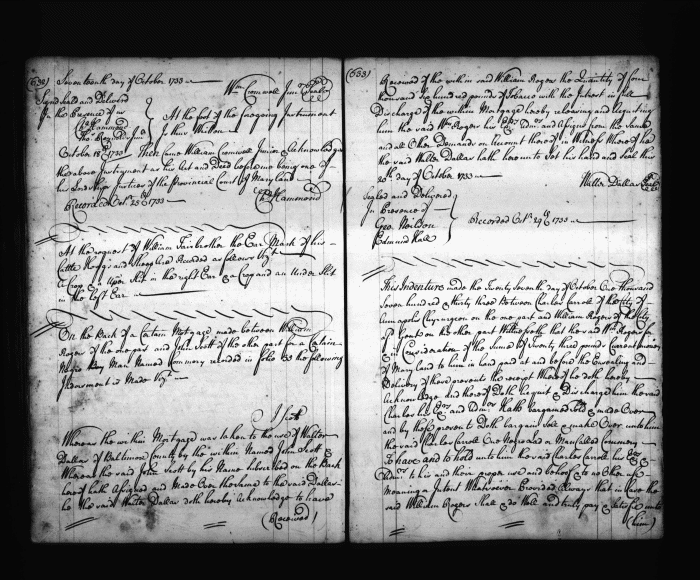 (632)
Seventeenth day of October 1733
Wm Cornwell Junr Seal
Signd Seald and Delivered
In the Presence of us
Hammond
At the foot of the foregoing Instrument
is thus Written
October 18th 1733 Then Came William Cornwell Junior & acknowledged
the above Instrument as his Act and Deed before me being one of
his Lordships Justices of the Provincial Court of Maryland
Hammond
Recorded Octr 25th 1733
At the request of William Fairbrother the Ear Mark of his
Cattle Hoggs and Sheep is as follows Vizt
a Crop & a Upper Slit in the right Ear & a Crop and an Under Slit
in the Left Ear
On the Back of a Certain Mortgage made between William
Rogers of the one part and John Scott of the other part for a Certain
Negro Man Named Commory recorded in folio the following
Indorsement is Made Vizt
J Scott
Whereas the within Mortgage was taken to the use of Walter
Dallas of Baltimore County by the within Named John Scott &
Whereas the said John Scott by his Name Subscribed on the Back
hereof hath Assigned and Made Over the same to the said Dallas
he the said Walter Dallas doth hereby acknowledge to have
(Received)
(633)
Received of the within said William Rogers the Quantity of four
thousand hundred pounds of Tobacco with the Interest in full
Discharge of the within Mortgage hereby releasing and acquitting
him the said Wm Rogers his Exrs Admrs and Assigns from the same
and all Other Demands on Account thereof in Witness Whereof he
the said Walter Dallas hath hereunto set his Hand and Seal this
20th day of October 1733
Walter Dallas Seal
Sealed and Delivered
In Presence of
Geo: Neilson
Edmund Hall
Recorded Octr 29th 1733
This Indenture made the Twenty Seventh day of October One thousand
Seven hundred & thirty three Between Charles Carroll of the City of
Annapolis Chyrurgeon on the one part and William Rogers of the City
of on the other part Wittnesseth that the said Wm Rogers for
& in Consideration of the Sume of Twenty three pounds Current money
of Maryland to him in hand paid at and before the Ensealing and
Delivery of these presents the receipt Whereof he doth hereby
acknowledge and thereof Doth acquit & Discharge him the said
Charles his Exrs and Admrs Hath bargained sold & made Over
and by these presents Doth bargain sell & make Over unto him
the said Charles Carroll One Negro Man Called Commory
To have and to hold unto him the said Charles Carroll his Exrs &
Admrs to his and their proper use and behoof & to no Other Use
meaning or Intent Whatsoever Provided always that in Case the
said William Rogers Shall & do Well and truly pay & satisfie unto
(him)